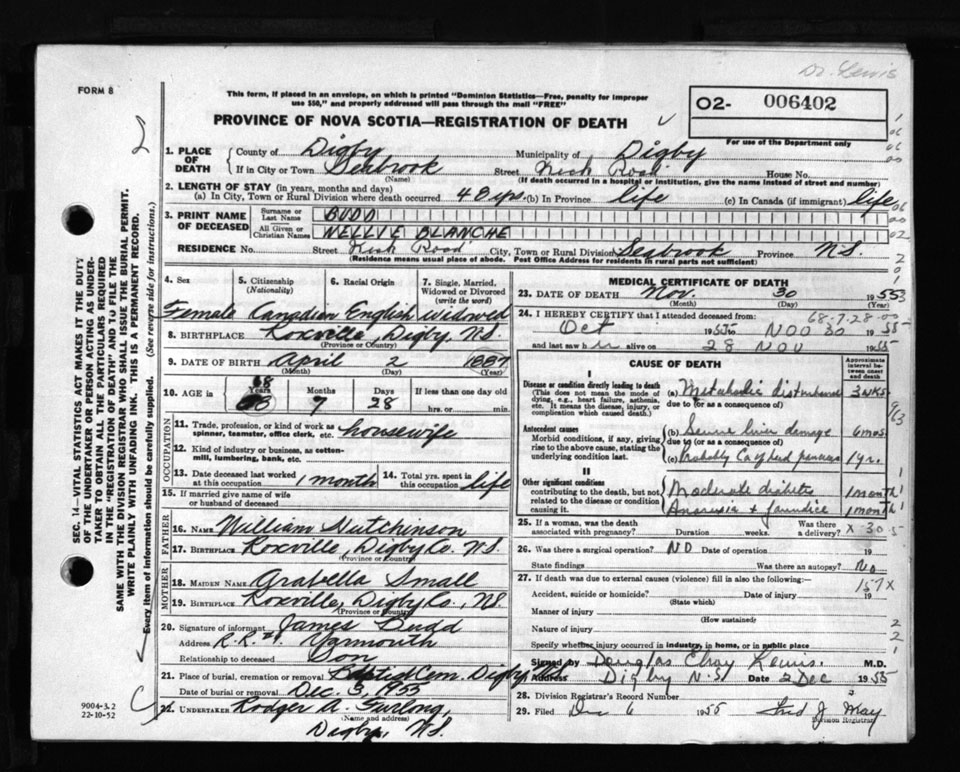 Dr. Lewis
FORM 8
This form, if placed in an envelope, on which is printed "Dominion Statistics—Free, penalty for improper
use $50," and properly addressed will pass through the mail "FREE"
02- 006402
For use of the Department only
PROVINCE OF NOVA SCOTIA—REGISTRATION OF DEATH
1. PLACE OF DEATH
County of Digby Municipality of Digby
If in City or Town Seabrook Street Road House No.
(Name) (If death occurred in a hospital or institution, give the name instead of street and number)
2. LENGTH OF STAY (in years, months and days)
(a) In City, Town or Rural Division where death occurred 48 yrs. (b) In Province life (c) In Canada (if immigrant) life
3. PRINT NAME OF DECEASED
Surname or Last Name BUDD
All Given or Christian Names NELLIE BLANCHE
RESIDENCE No. Street Road City, Town or Rural Division Seabrook Province N.S.
(Residence means usual place of abode. Post Office Address for residents in rural parts not sufficient)
4. Sex Female
5. Citizenship (Nationality) Canadian
6. Racial Origin English
7. Single, Married, Widowed or Divorced (write the word) widowed
8. BIRTHPLACE Roxville, Digby, N.S.
(Province or Country)
9. DATE OF BIRTH April 2 1887
(Month) (Day) (Year)
10. AGE in Years 68 Months 7 Days 28 If less than one day old hrs. or min.
OCCUPATION
11. Trade, profession, or kind of work as spinner, teamster, office clerk, etc. housewife
12. Kind of industry or business, as cotton-mill, lumbering, bank, etc.
13. Date deceased last worked at this occupation 1 month
14. Total yrs. spent in this occupation life
15. If married give name of wife or husband of deceased
FATHER
16. NAME William Hutchinson
17. BIRTHPLACE Roxville, Digby Co. N.S.
(Province or Country)
MOTHER
18. MAIDEN NAME Arabella Small
19. BIRTHPLACE Roxville, Digby Co., N.S.
(Province or Country)
20. Signature of informant James Budd
Address R.R. #1 Yarmouth
Relationship to deceased Son
21. Place of burial, cremation or removal Baptist Cem. Digby
Date of burial or removal Dec. 3, 1955
22. UNDERTAKER Rodger A. Furlong,
(Name and address)
Digby, N.S.
MEDICAL CERTIFICATE OF DEATH
23. DATE OF DEATH Nov. 30 1955
(Month) (Day) (Year)
68-7-28-00
24. I HEREBY CERTIFY that I attended deceased from:
Oct 1955 to Nov 30 1955
and last saw h er alive on 28 Nov 1955
CAUSE OF DEATH
Approximate interval between onset and death
I
Disease or condition directly leading to death (a) Metabolic disturbance 3 wks
(This does not mean the mode of dying, e.g., heart failure, asthenia, etc. It means the disease, injury, or complication which caused death.)
due to (or as a consequence of)
Antecedent causes
Morbid conditions, if any, giving rise to the above cause, stating the underlying condition last.
(b) Severe liver damage 6 mos.
due to (or as a consequence of)
(c) Probably Ca of head pancreas 1 yr.
II
Other significant conditions
contributing to the death, but not related to the disease or condition causing it.
Moderate diabetes 1 month
Anorexia + jaundice 1 month
25. If a woman, was the death associated with pregnancy? Duration weeks. Was there a delivery? X 30
26. Was there a surgical operation? NO Date of operation 19
State findings Was there an autopsy? No
27. If death was due to external causes (violence) fill in also the following:—
157X
Accident, suicide or homicide? Date of injury 19
(State which)
Manner of injury
(How sustained)
Nature of injury
Specify whether injury occurred in industry, in home, or in public place
Signed by Douglas Lewis. M.D.
Address Digby N.S. Date 2 Dec 1955
28. Division Registrar's Record Number
29. Filed Dec 6 1955 Fred J May
Division Registrar
SEC. 14—VITAL STATISTICS ACT MAKES IT THE DUTY
OF THE UNDERTAKER OR PERSON ACTING AS UNDER-
TAKER TO OBTAIN ALL THE PARTICULARS REQUIRED
IN THE "REGISTRATION OF DEATH" AND TO FILE THE
SAME WITH THE DIVISION REGISTRAR WHO SHALL ISSUE THE BURIAL PERMIT.
WRITE PLAINLY WITH UNFADING INK. THIS IS A PERMANENT RECORD.
Every item of information should be carefully supplied. (See reverse side for instructions.)
9004-3.2
22-10-52